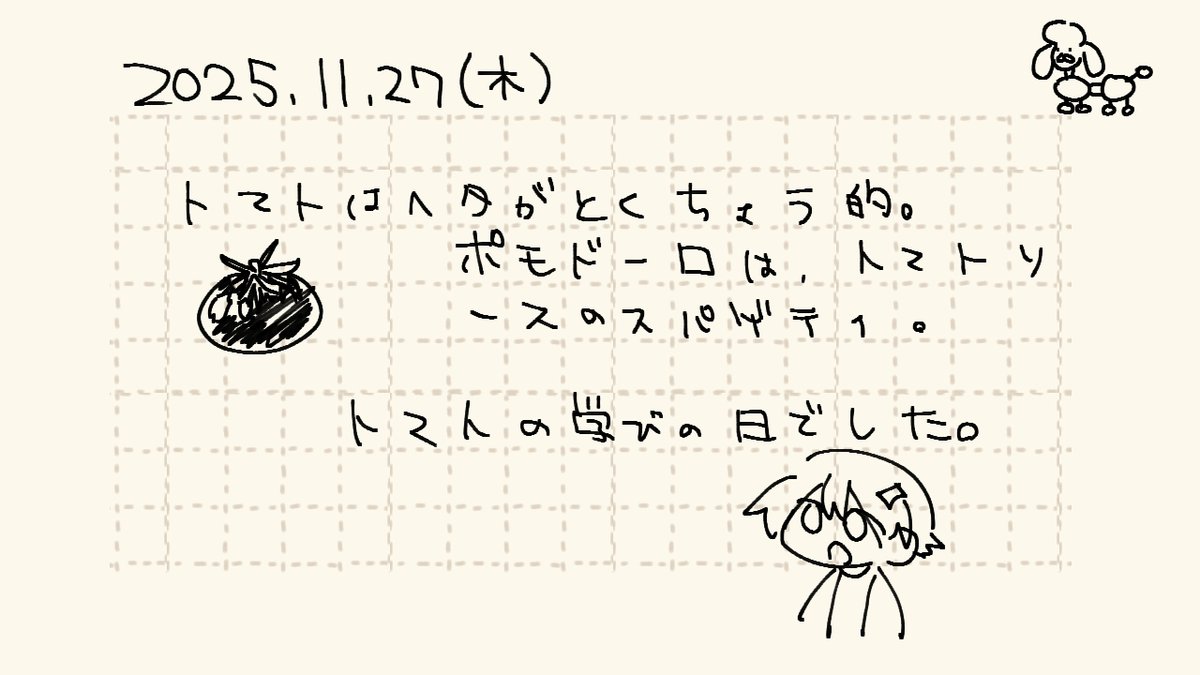 2025.11.27(木)
トマトはヘタがとくちょう的。
ポモドーロは、トマトソ
ースのスパゲティ。
トマトの学びの日でした。